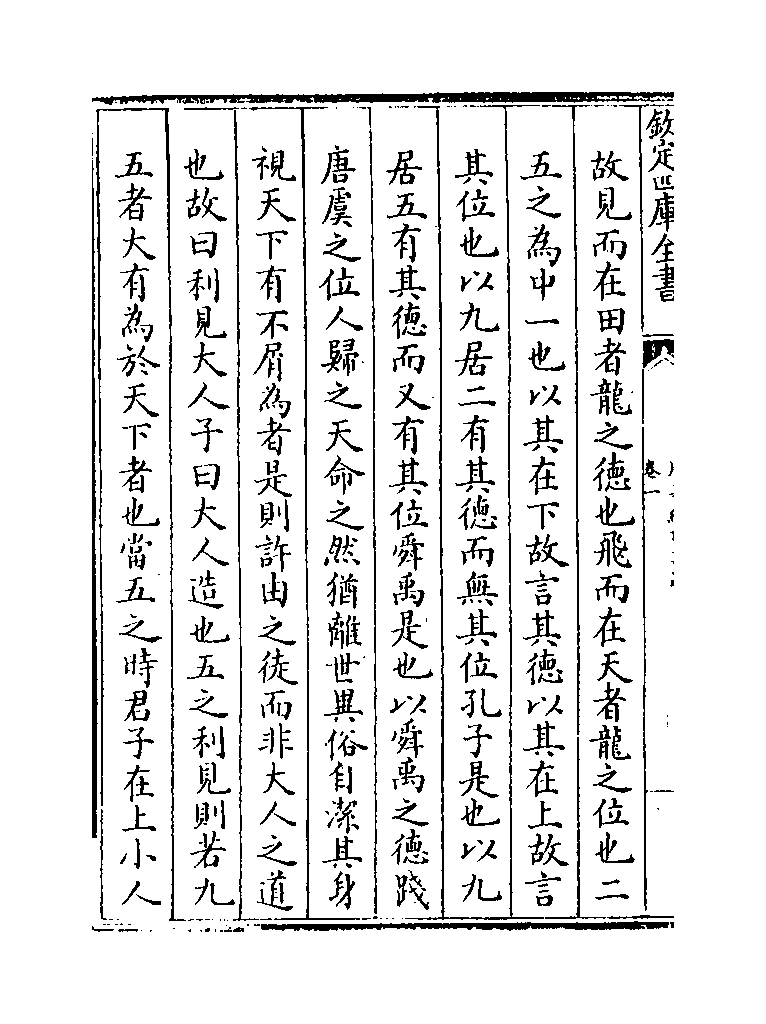 欽定四庫全書
卷一
故見而在田者龍之德也飛而在天者龍之位也二
五之為中一也以其在下故言其德以其在上故言
其位也以九居二有其德而無其位孔子是也以九
居五有其德而又有其位舜禹是也以舜禹之德踐
唐虞之位人歸之天命之然猶離世異俗自潔其身
視天下有不屑為者是則許由之徒而非大人之道
也故曰利見大人子曰大人造也五之利見則若九
五者大有為於天下者也當五之時君子在上小人